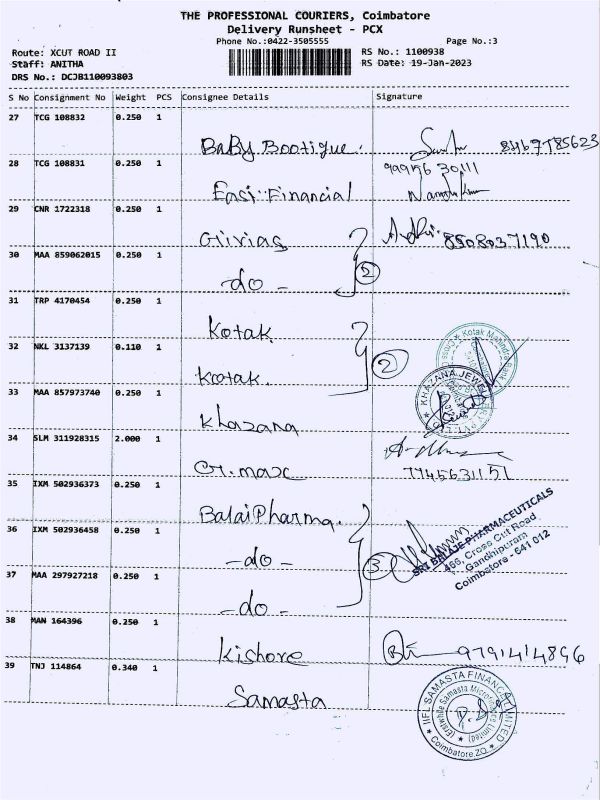 THE PROFESSIONAL COURIERS, Coimbatore
Delivery Runsheet - PCX
Phone No.:0422-3505555
Page No.:3
Route: XCUT ROAD II
RS No.: 1100938
Staff: ANITHA
RS Date: 19-Jan-2023
DRS No.: DCJB110093803
S No Consignment No Weight PCS Consignee Details Signature
27 TCG 108832 0.250 1
Baby Bootique. 8467785623
28 TCG 108831 0.250 1
Easi Financial
29 CNR 1722318 0.250 1
8508037190
30 MAA 859062015 0.250 1
-do- 2
31 TRP 4170454 0.250 1
Kotak
32 NKL 3137139 0.110 1
Kotak. 2
33 MAA 857973740 0.250 1
KHAZANA JEWELLERY
Khazana
34 SLM 311928315 2.000 1
G.max 7745631151
35 IXM 502936373 0.250 1
Balai Pharma.
36 IXM 502936458 0.250 1
-do- 3
SRI BALAJE PHARMACEUTICALS
466, Cross Cut Road
Gandhipuram
Coimbatore - 641 012
37 MAA 297927218 0.250 1
-do-
38 MAN 164396 0.250 1
Kishore 9791414896
39 TNJ 114864 0.340 1
Samasta
IIFL SAMASTA FINANCE LIMITED
(Erstwhile Samasta Microfinance Limited)
Coimbatore.ZO.